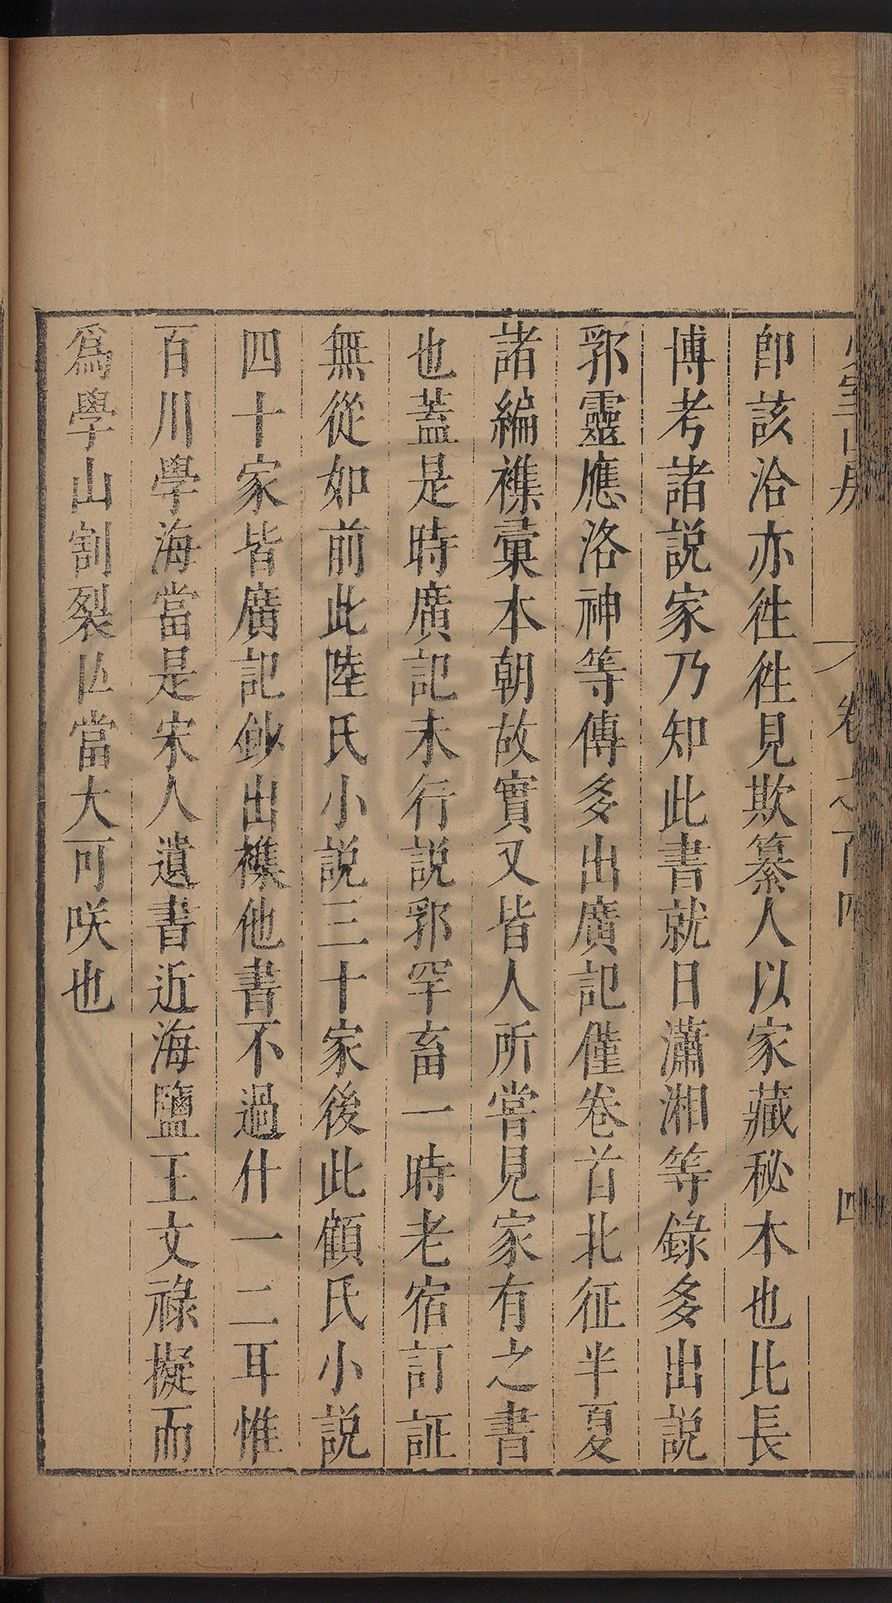 少室山房
卷之百四
四
卽該洽亦徃徃見欺纂人以家藏秘本也比長
博考諸說家乃知此書就日瀟湘等錄多出說
郛靈應洛神等傳多出廣記僅卷首北征半夏
諸編襍彙本朝故實又皆人所嘗見家有之書
也蓋是時廣記未行說郛罕畜一時老宿訂証
無從如前此陸氏小說三十家後此顧氏小說
四十家皆廣記鈔出襍他書不過什一二耳惟
百川學海當是宋人遺書近海鹽王文祿擬而
爲學山割裂𠀉當大可咲也